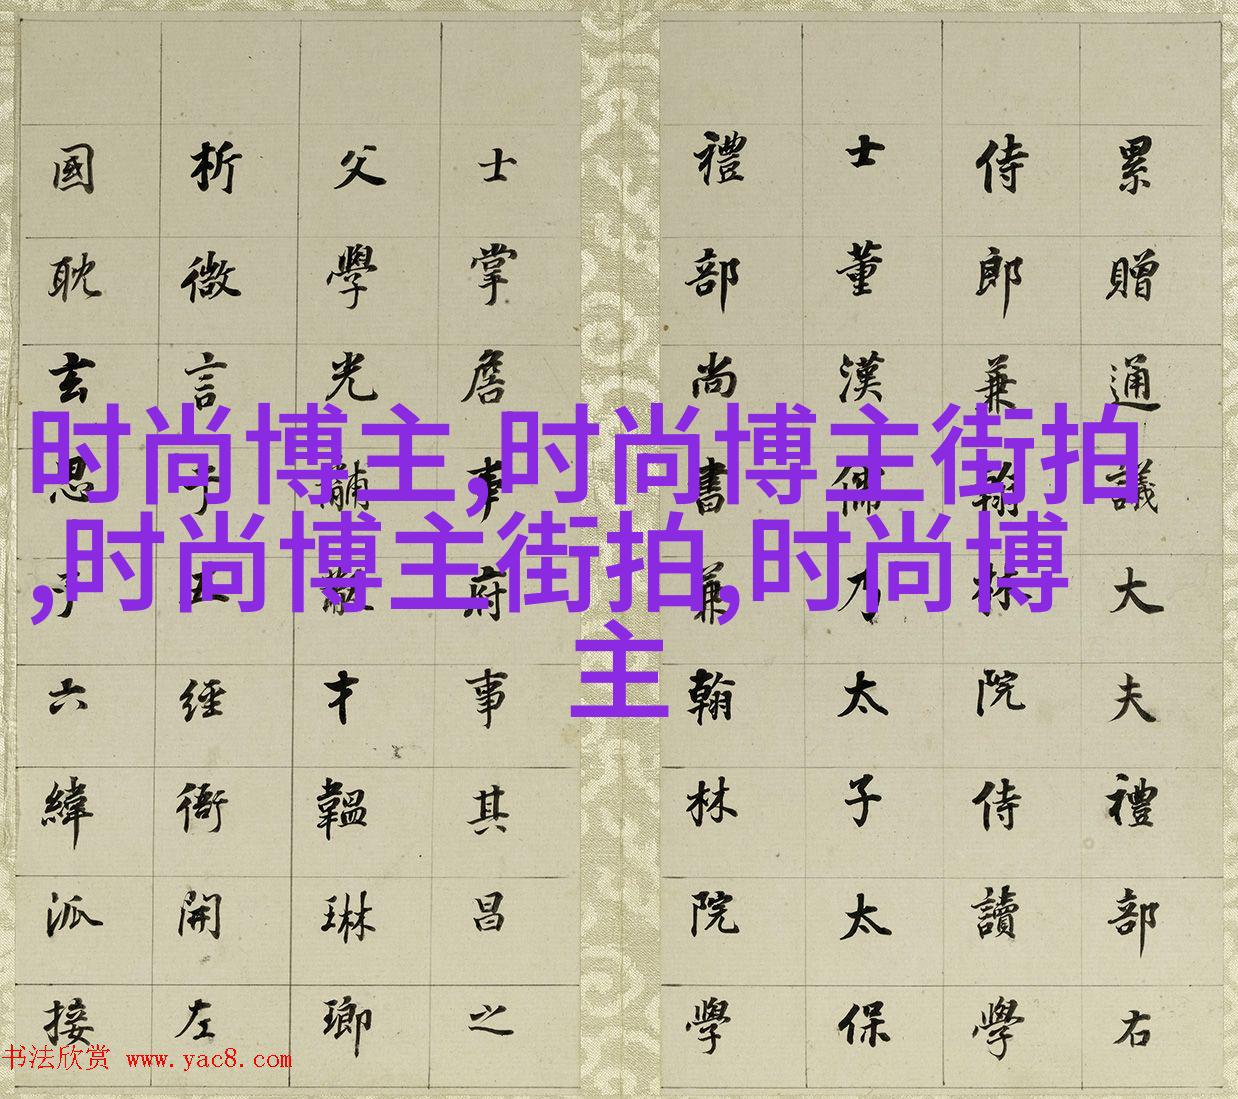 累贈通議大夫禮部右
侍郎兼翰林院侍讀學
士董漢儒乃太子太保
禮部尚書兼翰林院學
士掌詹事府事其昌之
父學光黼黻才韞琳瑯
析微言于五經衙開左
國耽玄思于六緯派接
时尚博主,时尚博主街拍
,时尚博主街拍,时尚博
主
书法欣赏 www.yac8.com